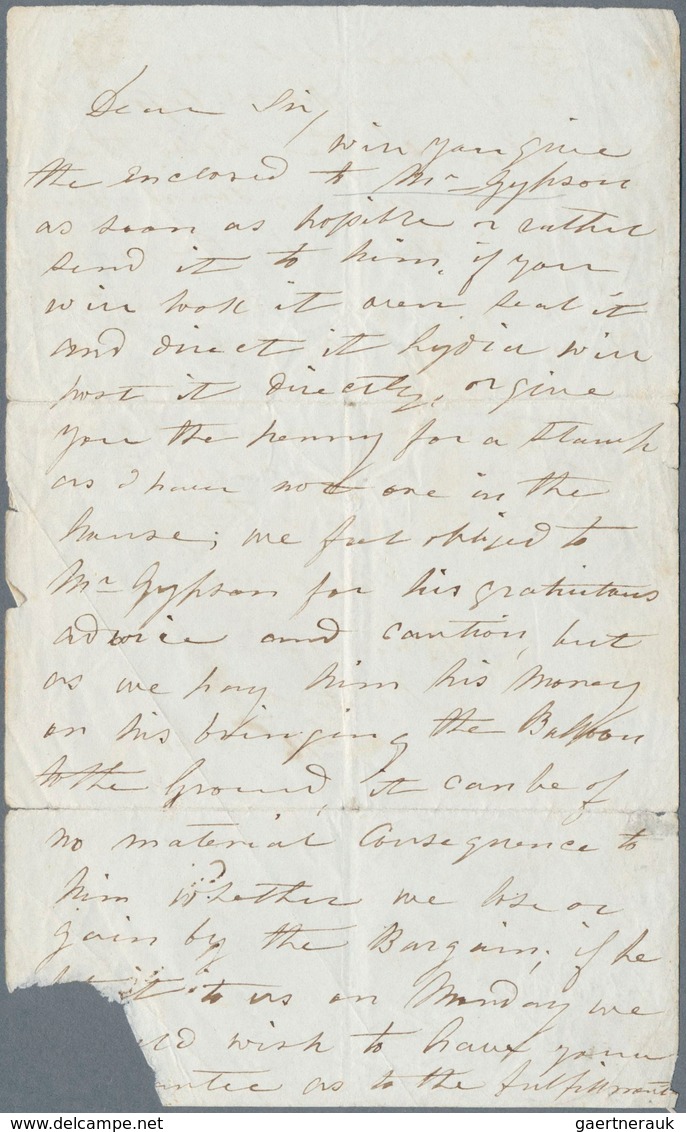 Dear Sir,
will you give
the enclosed to Mr Gypson
as soon as possible or rather
send it to him, if you
will look it over, seal it
and direct it Lydia will
post it directly, or give
you the penny for a stamp
as I have not one in the
house; we feel obliged to
Mr Gypson for his gratuitous
advice and caution, but
as we pay him his money
on his bringing the Balloon
to the Ground, it can be of
no material consequence to
him whether we lose or
gain by the Bargain; if he
it to us on Monday we
ld wish to have your
ntee as to the fulfillment
gaertnerauk